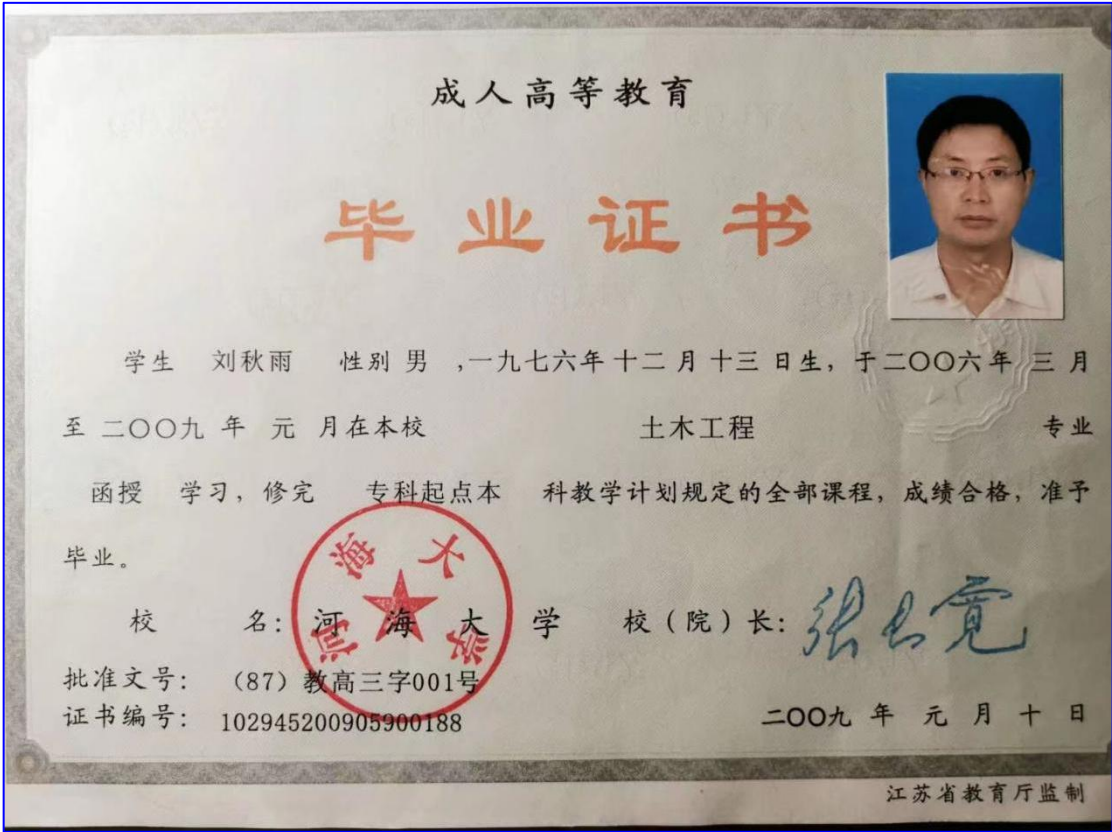 成人高等教育
毕业证书
学生 刘秋雨 性别 男 ,一九七六年十二月十三日生，于二〇〇六年 三月
至 二〇〇九 年 元 月在本校 土木工程 专业
函授 学习，修完 专科起点本 科教学计划规定的全部课程，成绩合格，准予
毕业。
河海大学
校 名：河海大学 校（院）长：张长宽
批准文号：（87）教高三字001号
证书编号：102945200905900188
二〇〇九 年 元 月 十 日
江苏省教育厅监制